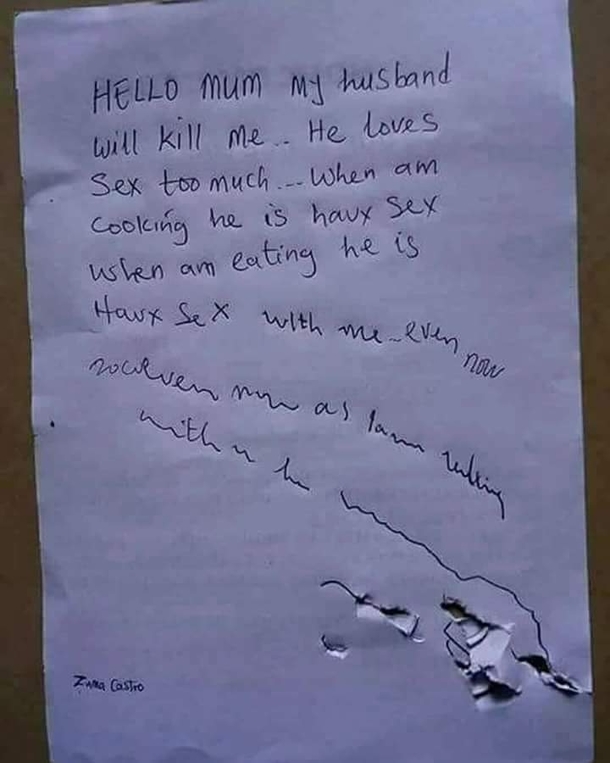 HELLO MUM My husband
will kill me.. He loves
Sex too much...When am
cooking he is havx sex
when am eating he is
Havx Sex with me..even now
even now as Iam talking
with u he
Zuma Castro